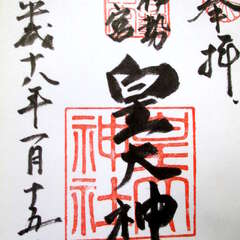 奉拝
伊勢
宮
皇大神
皇大
神社
平成十八年一月十五